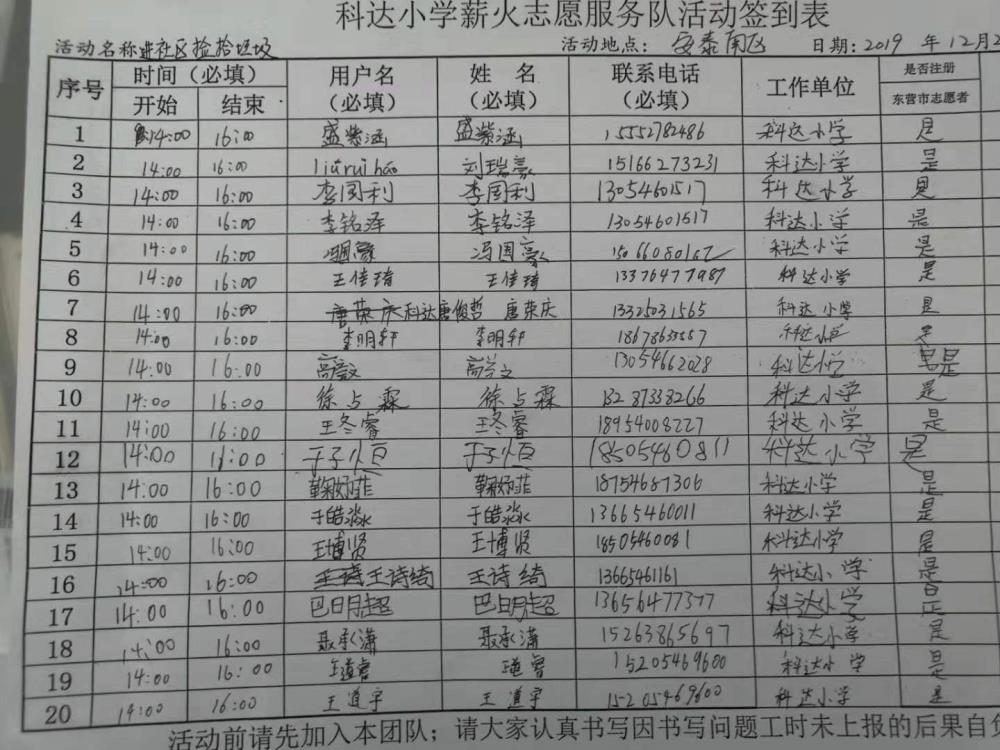 科达小学薪火志愿服务队活动签到表
活动名称进社区捡拾垃圾 活动地点: 安泰南区 日期:2019 年12月2
序号 时间（必填） 用户名（必填） 姓 名（必填） 联系电话（必填） 工作单位 是否注册东营市志愿者
开始 结束
1 14:00 16:00 盛紫涵 盛紫涵 15552782486 科达小学 是
2 14:00 16:00 liuruihao 刘瑞豪 15166273231 科达小学 是
3 14:00 16:00 李国利 李国利 13054601517 科达小学 是
4 14:00 16:00 李铭泽 李铭泽 13054601517 科达小学 是
5 14:00 16:00 冯国豪 冯国豪 科达小学 是
6 14:00 16:00 王佳琦 王佳琦 13376477987 科达小学 是
7 14:00 16:00 唐荣庆科达唐俊哲 唐荣庆 13325031565 科达小学 是
8 14:00 16:00 李明轩 李明轩 科达小学 是
9 14:00 16:00 13054662028 科达小学 是
10 14:00 16:00 徐占霖 徐占霖 13287338266 科达小学 是
11 14:00 16:00 王冬睿 王冬睿 18954008227 科达小学 是
12 14:00 16:00 于子恒 于子恒 18505460811 科达小学 是
13 14:00 16:00 18754687306 科达小学 是
14 14:00 16:00 于皓淼 于皓淼 13665460011 科达小学 是
15 14:00 16:00 王博贤 王博贤 18505460081 科达小学 是
16 14:00 16:00 王诗王诗绮 王诗绮 13665461161 科达小学 是
17 14:00 16:00 巴日月超 巴日月超 13656477377 科达小学 是
18 14:00 16:00 聂承潇 聂承潇 15263865697 科达小学 是
19 14:00 16:00 王道睿 王道睿 15205469600 科达小学 是
20 14:00 16:00 王道宇 王道宇 15205469600 科达小学 是
活动前请先加入本团队；请大家认真书写因书写问题工时未上报的后果自负